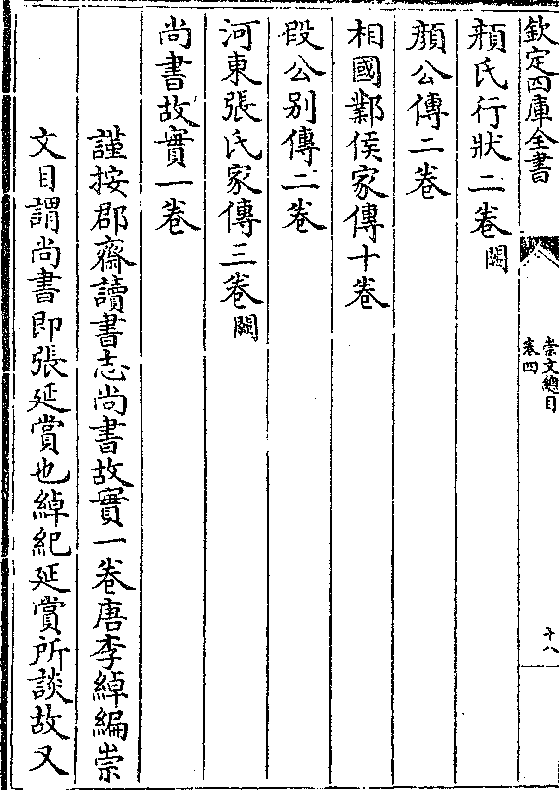 欽定四庫全書
崇文總目
卷四
十八
顔氏行狀二卷闕
顔公傳二卷
相國鄴侯家傳十卷
段公别傳二卷
河東張氏家傳三卷闕
尚書故實一卷
謹按郡齋讀書志尚書故實一卷唐李綽編崇
文目謂尚書即張延賞也綽紀延賞所談故又